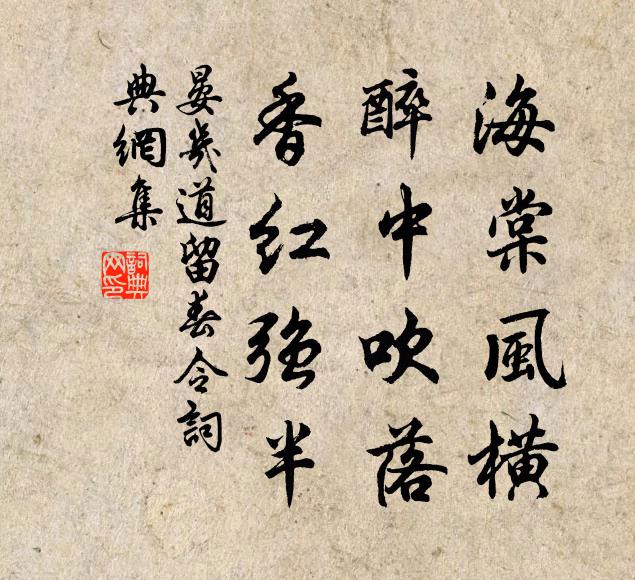 海棠風橫
醉中吹落
香紅強半
晏幾道留春令詞
典網集
詞典網印